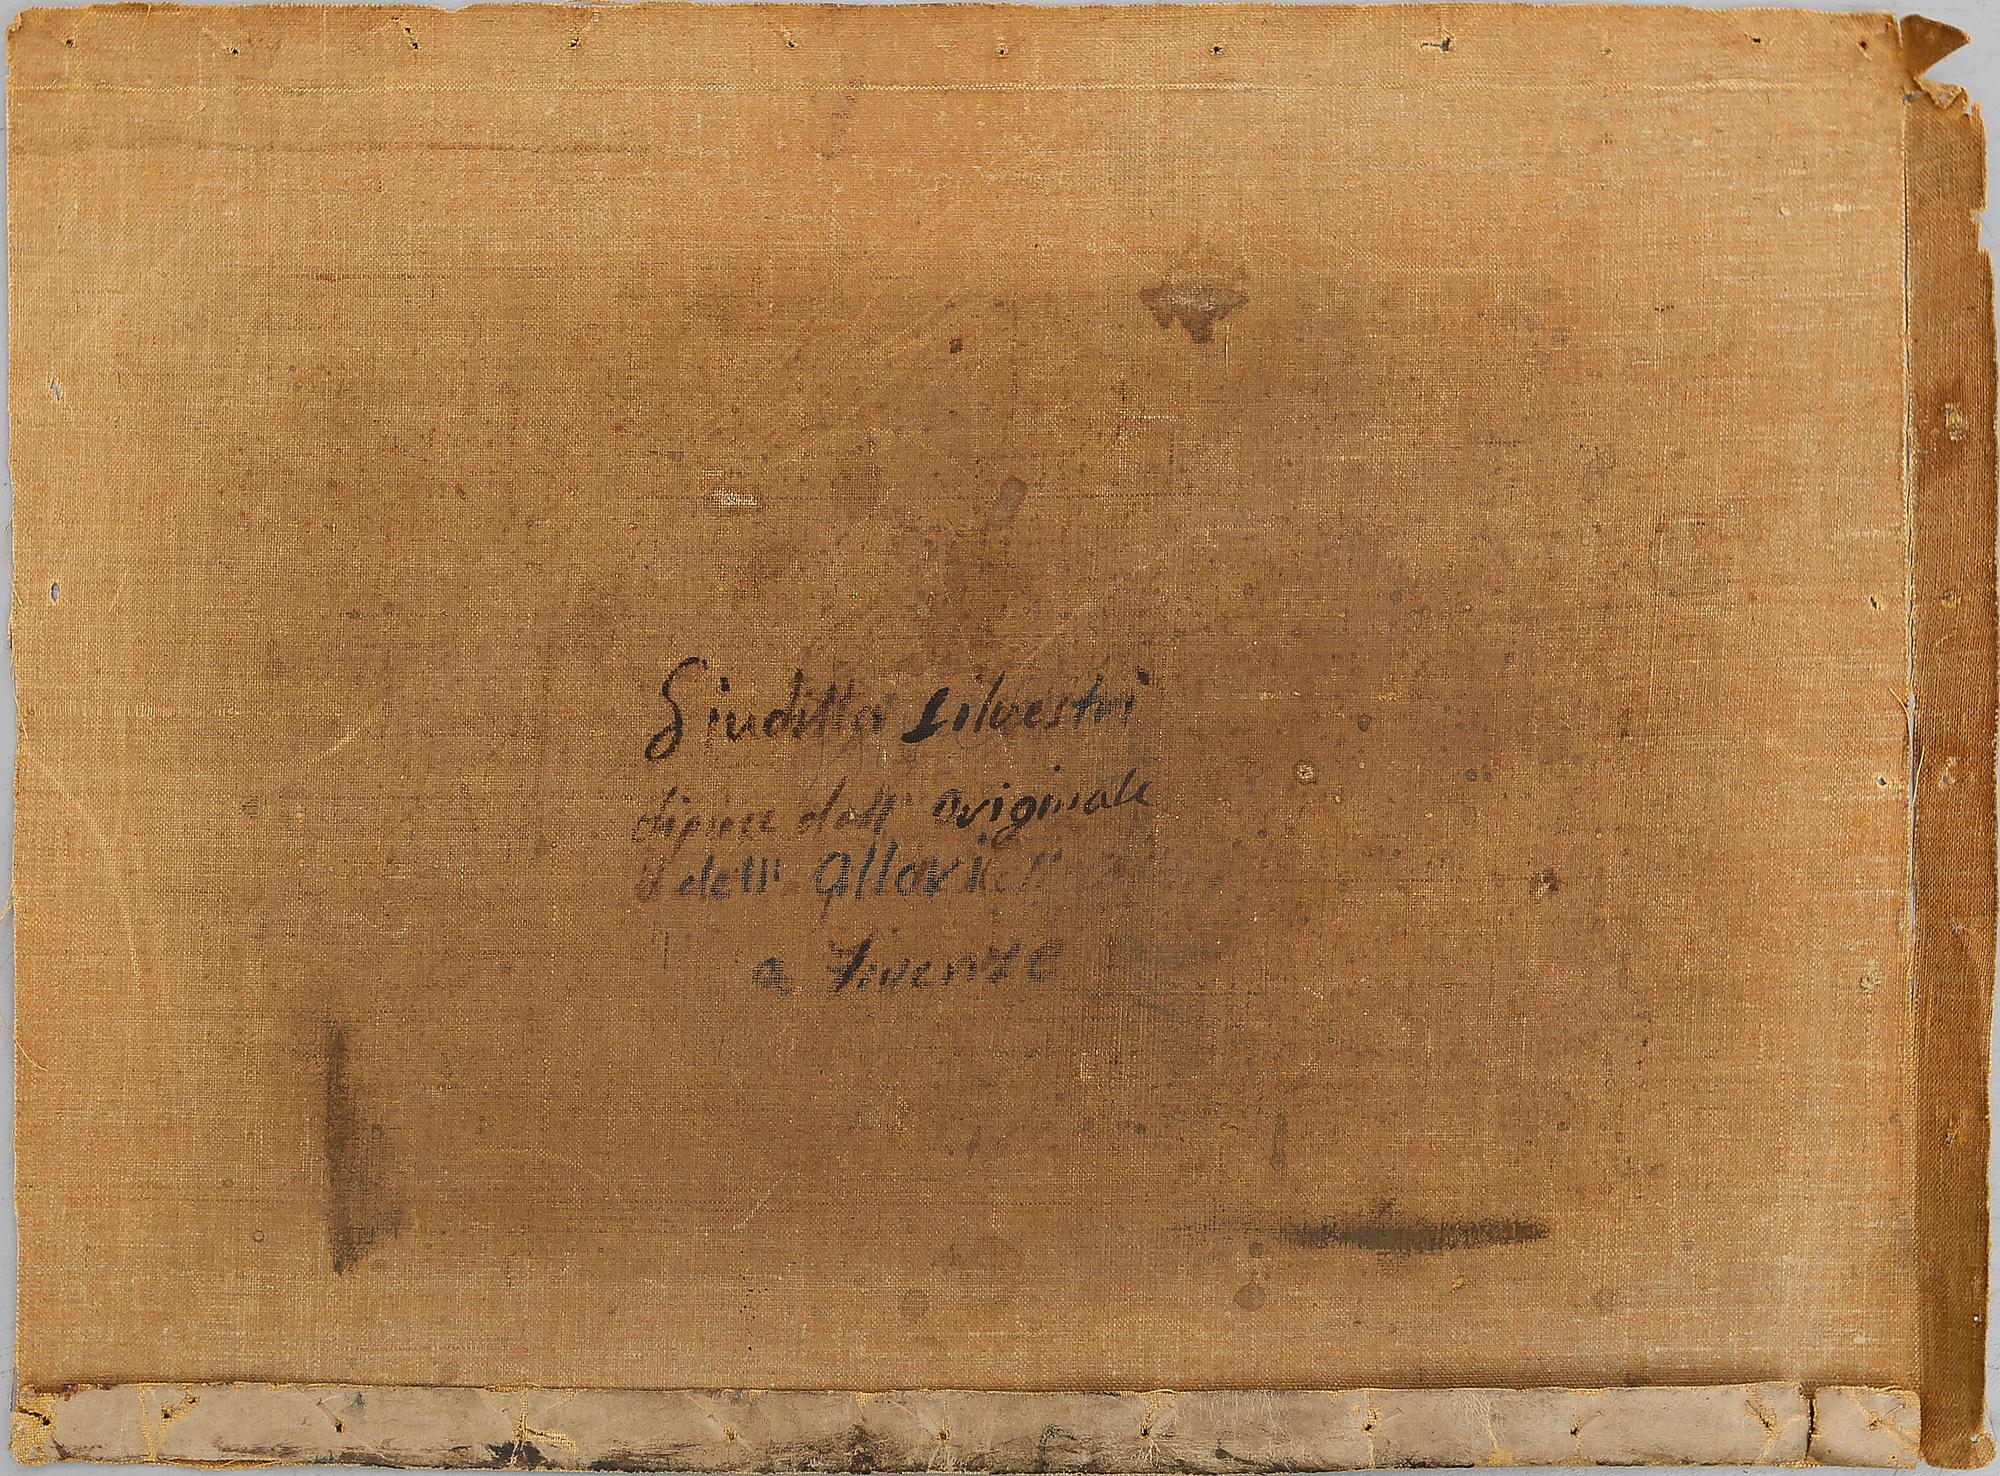 Giuditta Silvestri
dipince dall' Originale
dell' Allori
a Firenze